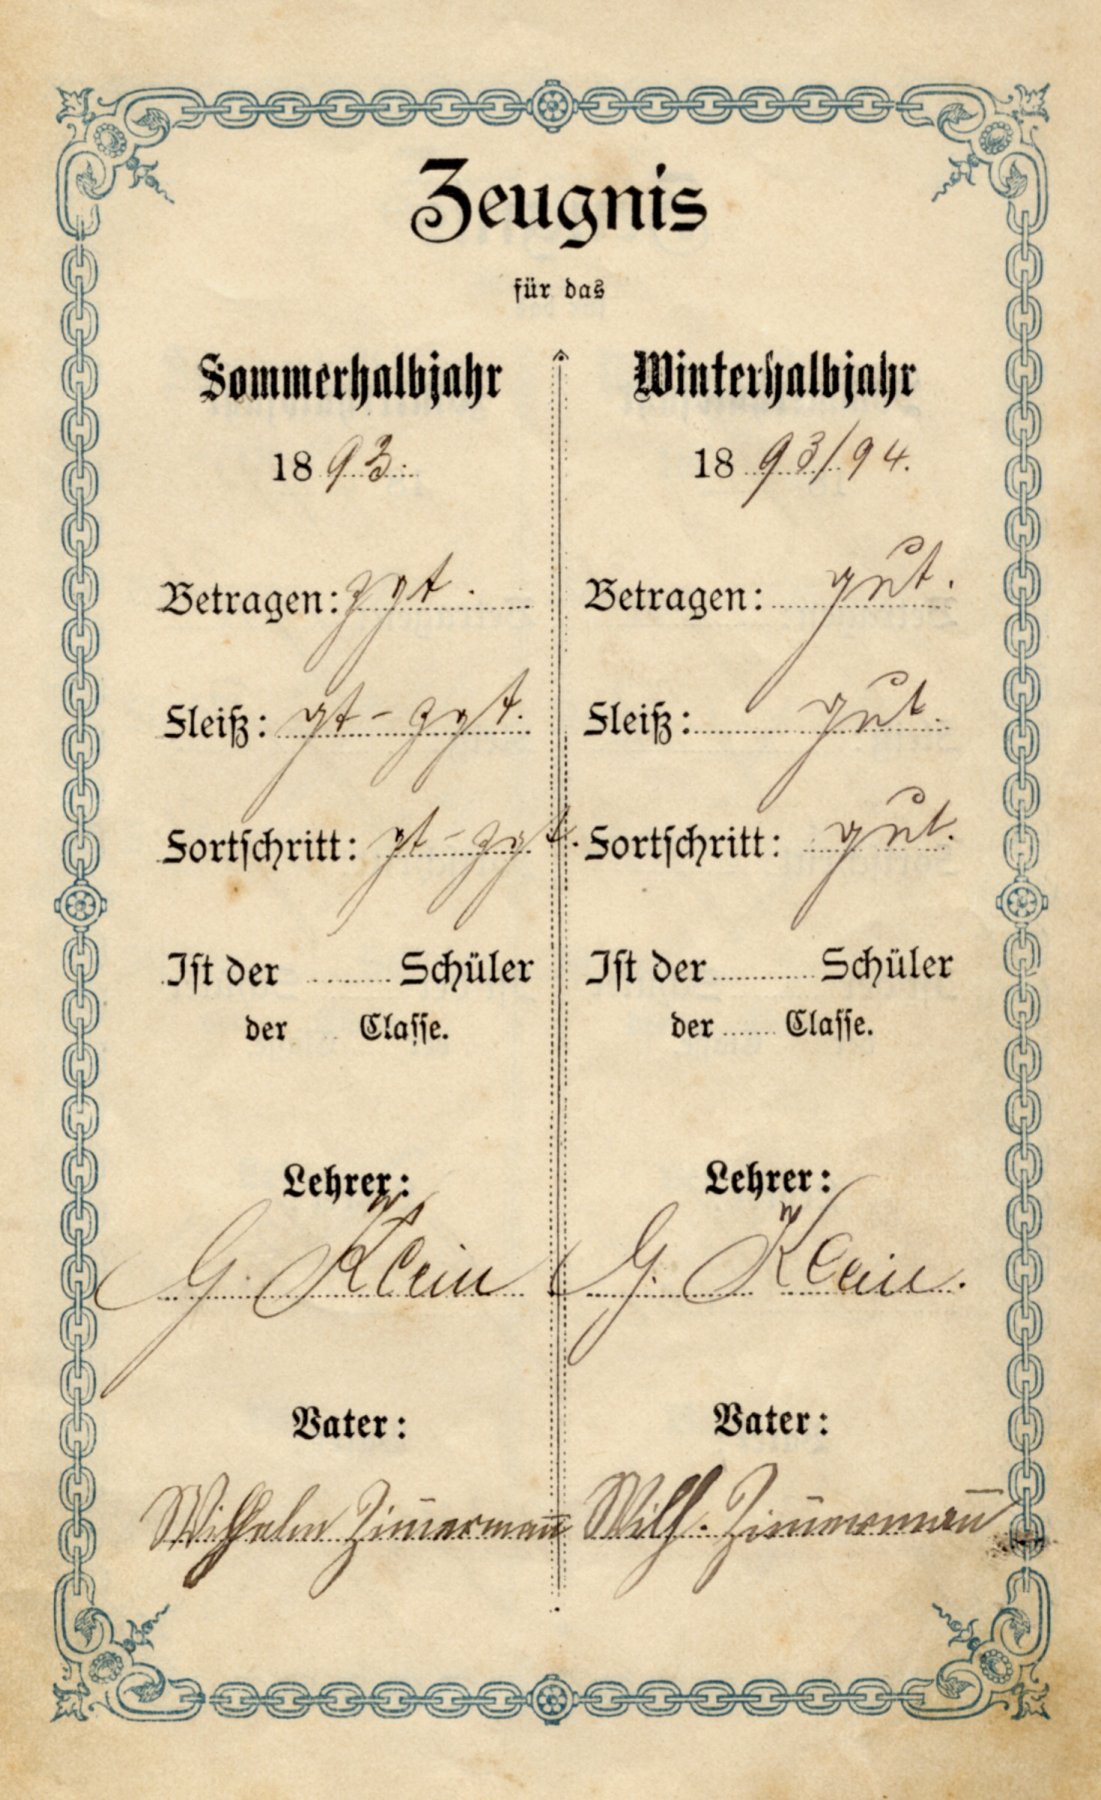 Zeugnis
für das
Sommerhalbjahr
1893.
Betragen: zgt.
Fleiß: gt - zgt.
Fortschritt: gt - zgt.
Ist der ........ Schüler
der .... Classe.
Lehrer:
G. Klein
Vater:
Wilhelm Zim̅erman̅
Winterhalbjahr
1893/94.
Betragen: gut.
Fleiß: gut.
Fortschritt: gut.
Ist der ........ Schüler
der ...... Classe.
Lehrer:
G. Klein.
Vater:
Wilh. Zim̅erman̅